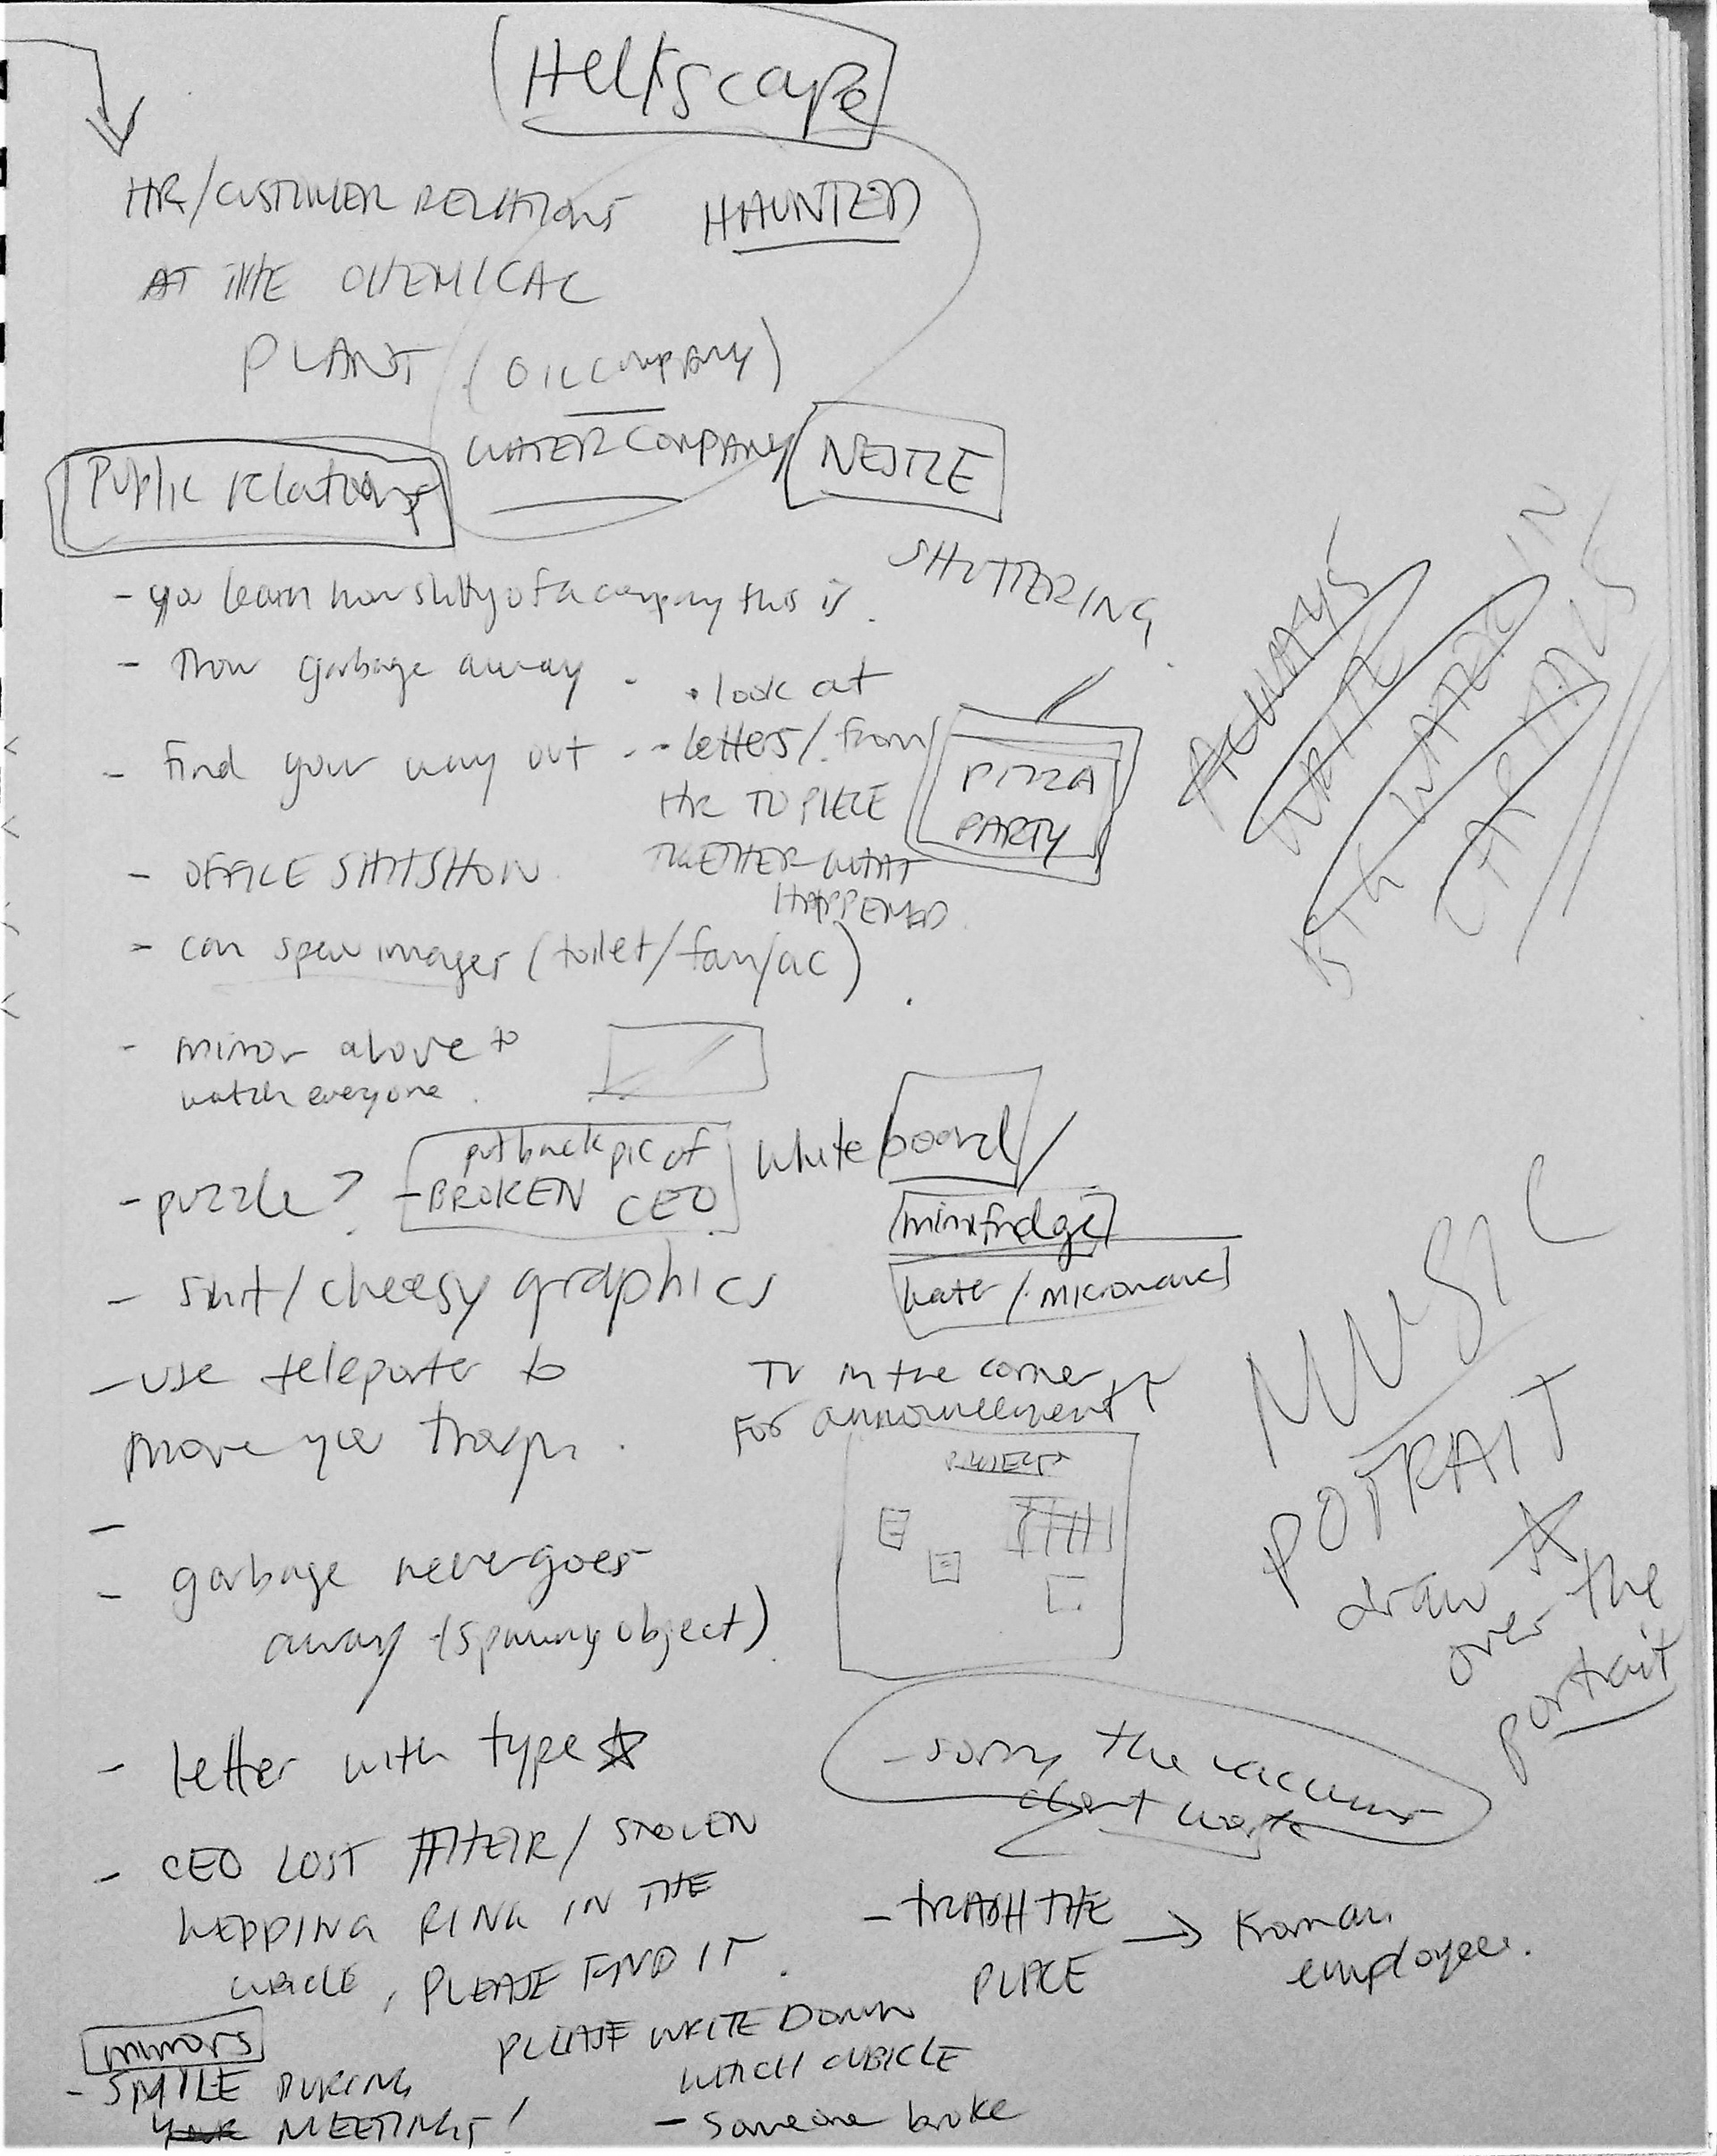 Hellscape
HR/CUSTOMER RELATIONS
HAUNTED
AT THE CHEMICAL
PLANT (OIL COMPANY)
WATER COMPANY
NESTLE
Public relations
SHUTTERING
- you learn how shitty of a company this is.
- Throw garbage away.
- Find your way out.
• look at
• letters/from
HR TO PIECE
TOGETHER WHAT
HAPPENED.
PIZZA
PARTY
ALWAYS
WRITE
IN
CAPITALS
- OFFICE SHITSHOW
- can spew images (toilet/fan/ac).
- mirror above to
watch everyone.
- puzzle?
put back pic of
- BROKEN CEO
whiteboard
minifridge
water/microwave
- shit/cheesy graphics
- use teleporter to
move you
TV in the corner
FOR announcements
-
- garbage never goes
away (spawny object).
MUSIC
POTRAIT
draw ☆
over the
portrait
- letter with type ☆
- sorry the vacuum
doesn't work
- CEO LOST THEIR/STOLEN
WEDDING RING IN THE
CUBICLE, PLEASE FIND IT.
PLEASE WRITE DOWN
WHICH CUBICLE
- someone broke
- TRASH THE
PLACE
→
employee.
mirrors
- SMILE DURING
YOUR MEETINGS!